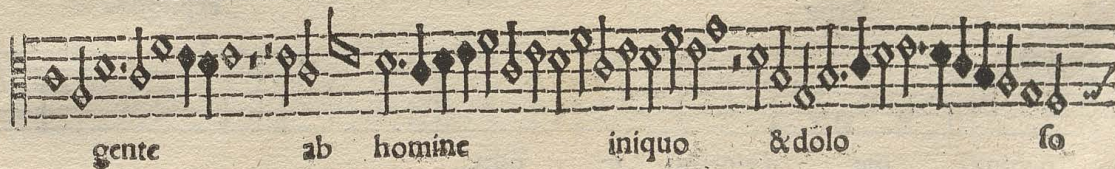 gente ab homine iniquo & dolo ſo